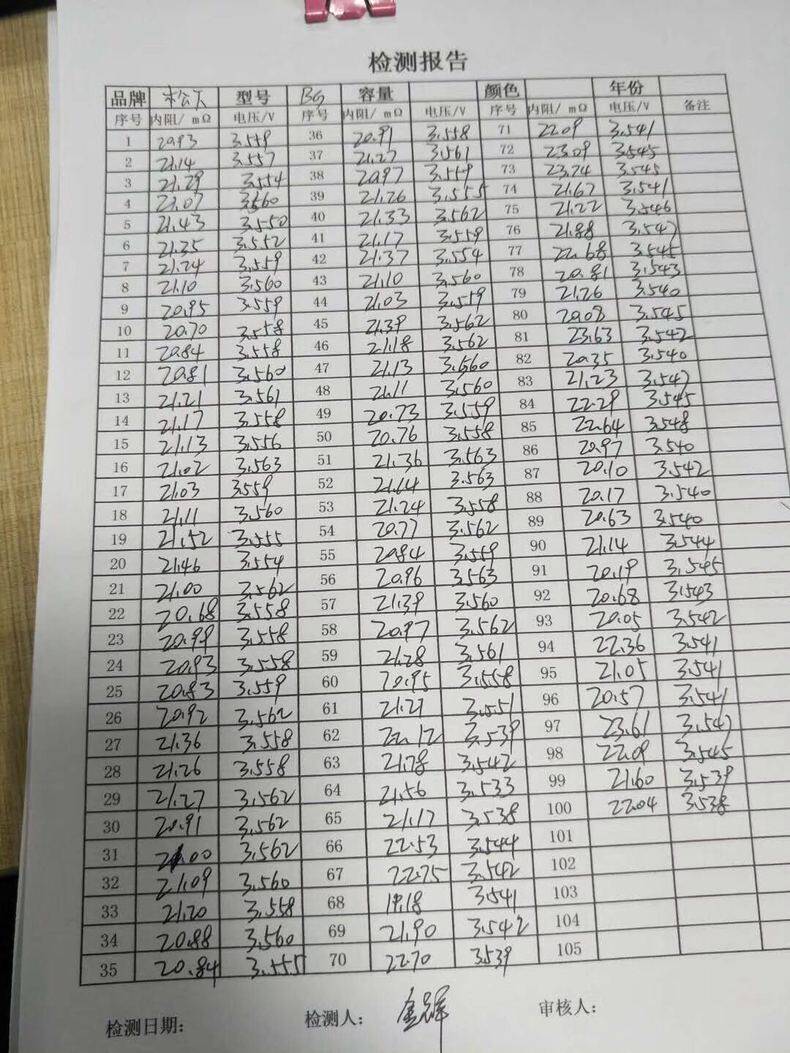 检测报告
品牌 松下 型号 BG 容量 颜色 年份
序号 内阻/ mΩ 电压/V 序号 内阻/ mΩ 电压/V 序号 内阻/ mΩ 电压/V 备注
1 20.93 3.559 36 20.91 3.558 71 22.09 3.541
2 21.14 3.557 37 21.27 3.561 72 23.09 3.545
3 21.29 3.554 38 20.97 3.559 73 23.74 3.545
4 21.07 3.560 39 21.26 3.555 74 21.67 3.541
5 21.43 3.550 40 21.33 3.562 75 21.22 3.546
6 21.35 3.552 41 21.17 3.559 76 21.88 3.547
7 21.24 3.559 42 21.37 3.554 77 22.68 3.545
8 21.10 3.560 43 21.10 3.560 78 20.81 3.543
9 20.95 3.559 44 21.03 3.559 79 21.26 3.540
10 20.70 3.558 45 21.39 3.562 80 20.08 3.545
11 20.84 3.558 46 21.18 3.562 81 23.63 3.542
12 20.81 3.560 47 21.13 3.560 82 20.35 3.540
13 21.21 3.561 48 21.11 3.560 83 21.23 3.547
14 21.17 3.558 49 20.73 3.559 84 22.29 3.545
15 21.13 3.556 50 20.76 3.558 85 22.64 3.548
16 21.02 3.563 51 21.36 3.563 86 20.97 3.540
17 21.03 3.559 52 21.14 3.563 87 20.10 3.542
18 21.11 3.560 53 21.24 3.558 88 20.17 3.540
19 21.52 3.555 54 20.77 3.562 89 20.63 3.540
20 21.46 3.554 55 20.84 3.559 90 21.14 3.544
21 21.00 3.562 56 20.96 3.563 91 20.19 3.545
22 20.68 3.558 57 21.39 3.560 92 20.68 3.543
23 20.99 3.558 58 20.97 3.562 93 20.05 3.542
24 20.93 3.558 59 21.28 3.561 94 22.36 3.541
25 20.83 3.559 60 20.95 3.558 95 21.05 3.541
26 20.92 3.562 61 21.21 3.551 96 20.57 3.541
27 21.36 3.558 62 22.12 3.539 97 23.61 3.547
28 21.26 3.558 63 21.78 3.542 98 22.09 3.545
29 21.27 3.562 64 21.56 3.533 99 21.60 3.539
30 20.91 3.562 65 21.17 3.538 100 22.04 3.538
31 21.00 3.562 66 22.53 3.544 101
32 21.09 3.560 67 22.75 3.542 102
33 21.20 3.558 68 19.18 3.541 103
34 20.88 3.560 69 21.90 3.542 104
35 20.84 3.555 70 22.70 3.539 105
检测日期： 检测人： 审核人：